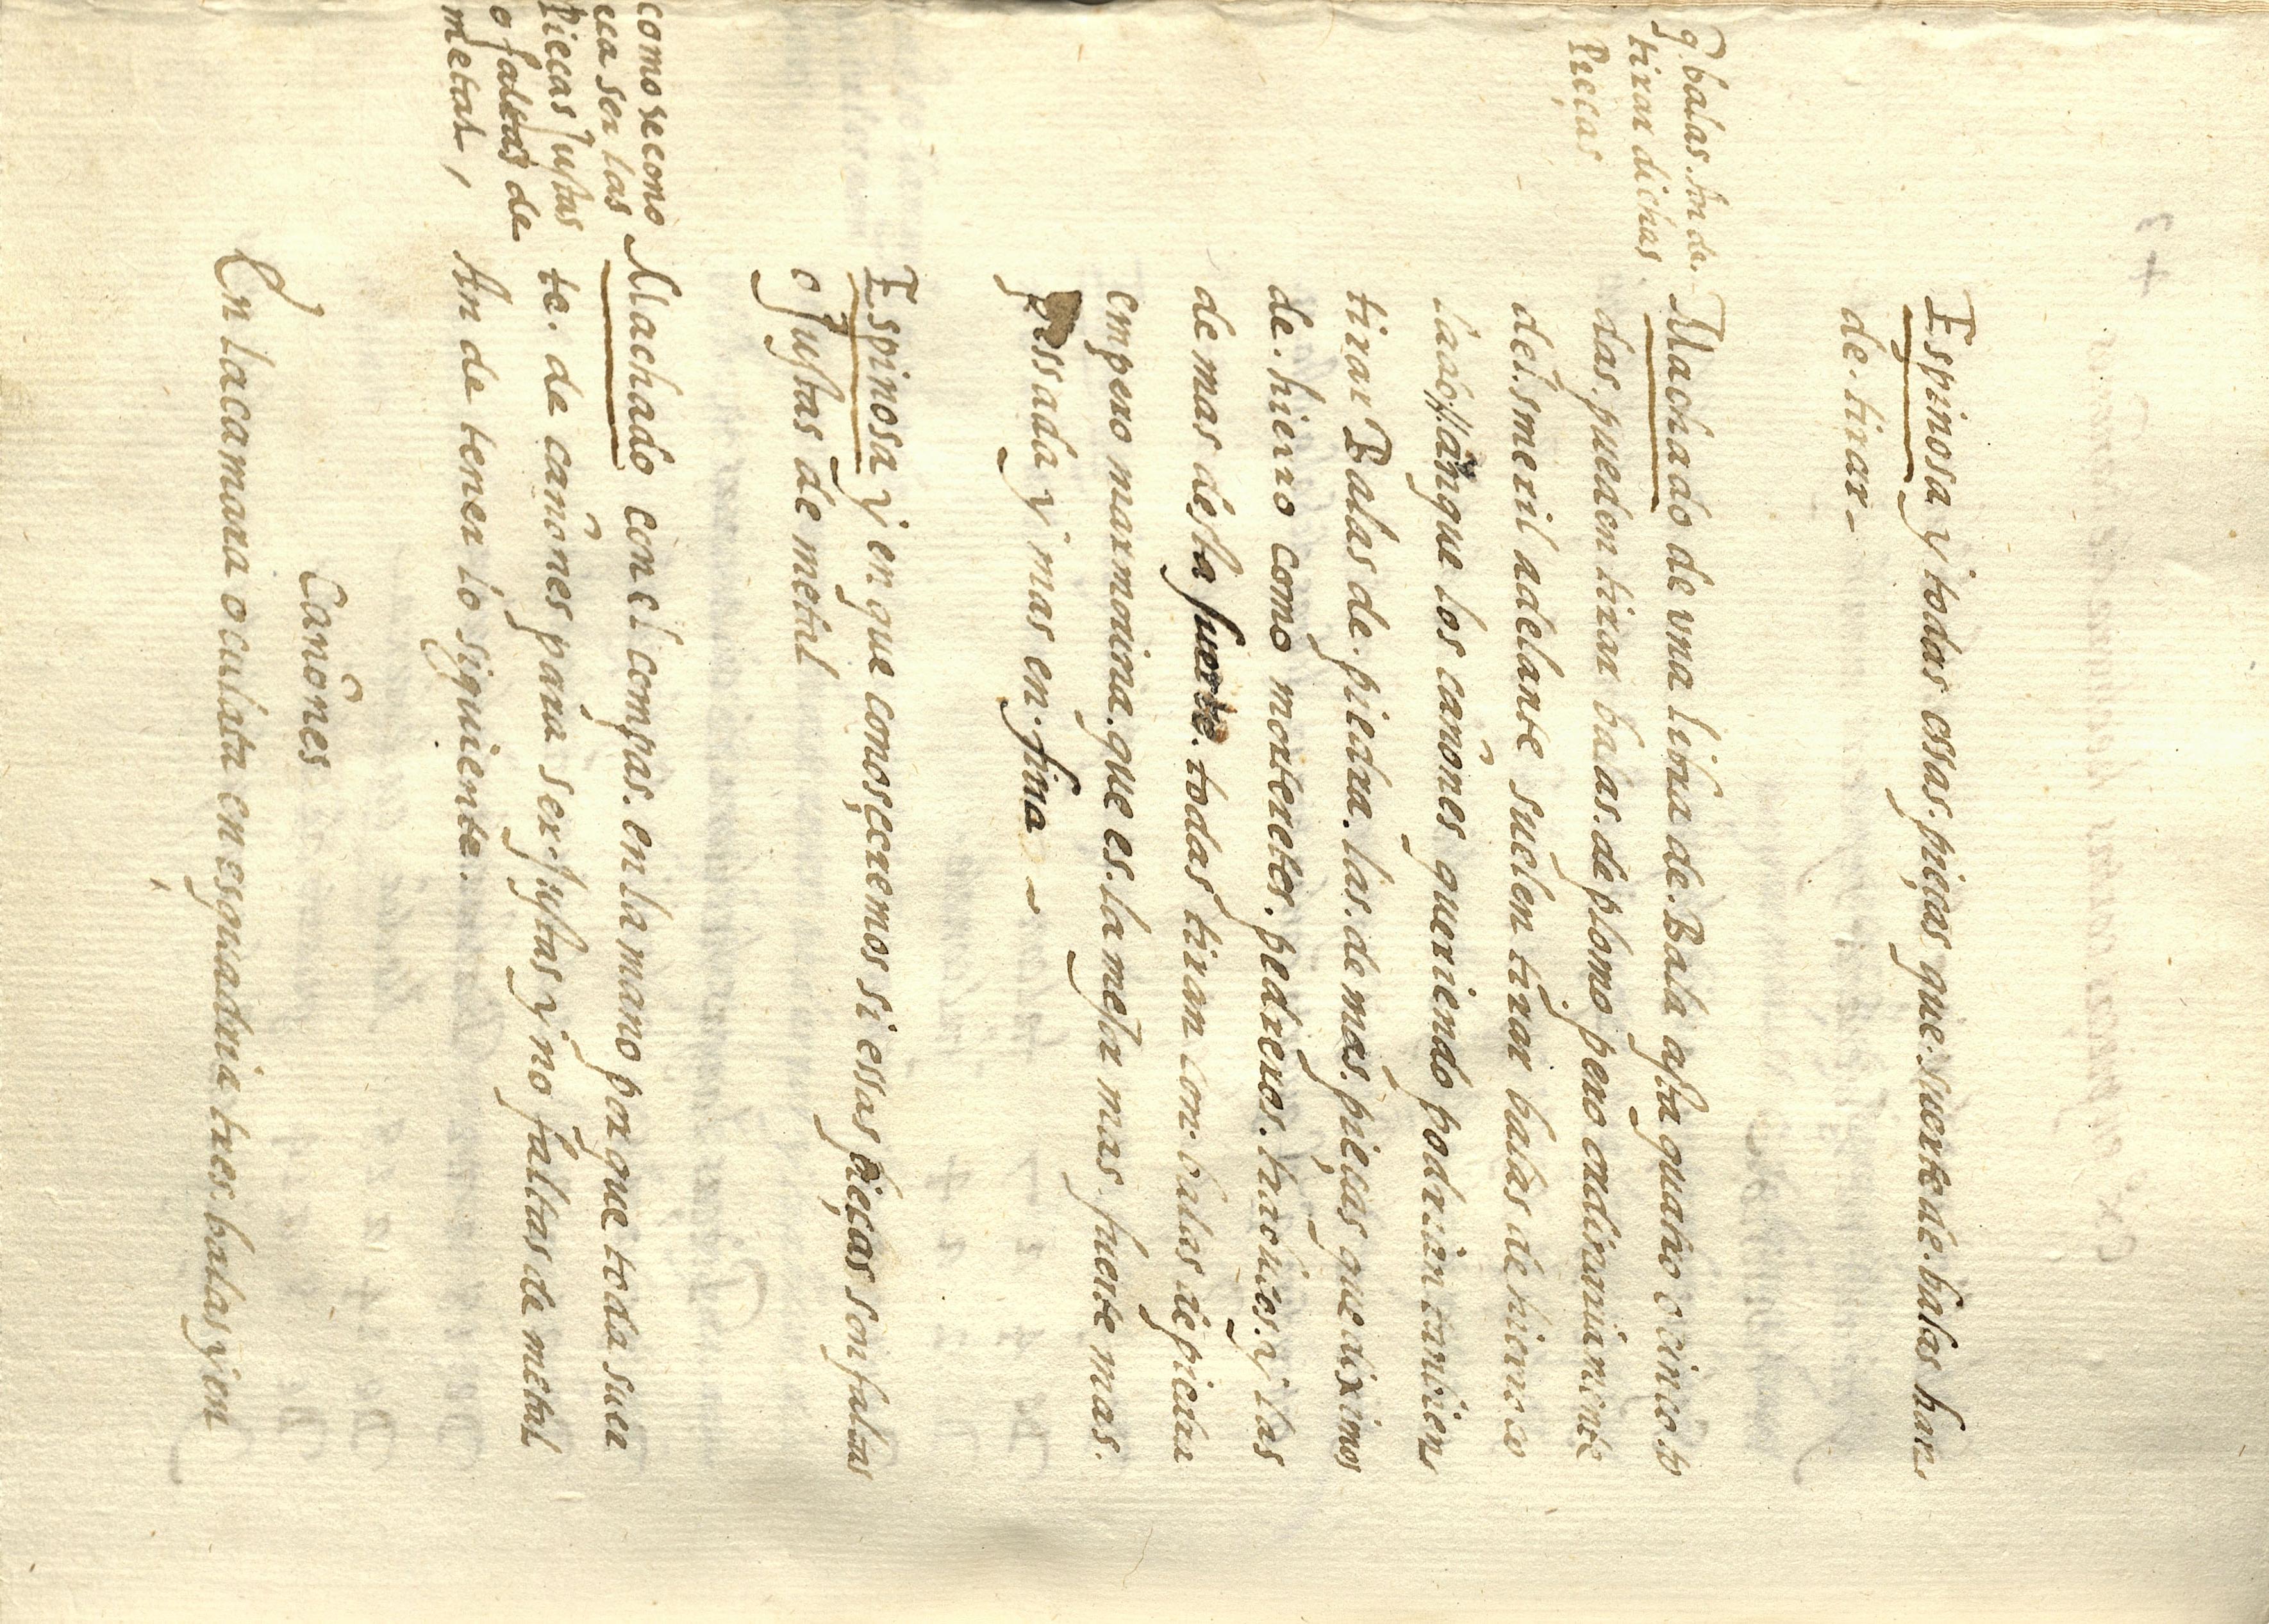 Espinosa y todas essas. pieças que. suerte de. balas han
de. tirar -
q balas. son de.
tirar dichas
Pieças
Machado de vna libra de. Bala asta quatro o cinco to
das. pueden tirar balas. de plomo pero ordinariamente
del. smeril adelante suelen tirar balas de hierro
que los cañones queriendo podrian tambien
tirar Balas de. piedra. las. de mas. pieças que diximos
de. hierro como morteretes. pedreros. truchos. y las
de mas desta suerte. todas tiran con. balas de piedra
empero marmorina. que es. la mesta mas fuerte mas.
pessada y mas en. fina -
Espinosa y en que conosceremos si essas pieças son faltas
o justas de metal
como se cono
cera ser las
Pieças justas
o faltas de
metal,
Machado con el compas. en la mano porque toda suer
te. de cañones para ser. justas y no faltas de metal
An de tener lo siguiente.
Cañones
En la camara o culata en esquadria tres. balas y en